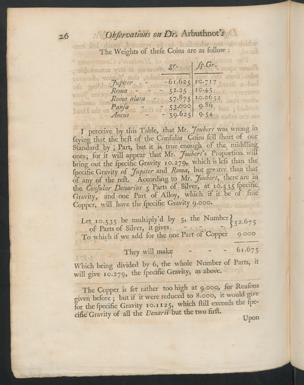 26 Observations on Dr. Arbuthnot's
The Weights of these Coins are as follow:
gr. sp.Gr.
Jupiter - - 61.625 10.717
Roma - - 52.25 10.45
Roma alata - - 57.875 10.0652
Pansa - - 52.000 9.86
Ancus - - 39.625 9.54
I perceive by this Table, that Mr. Joubert was wrong in
saying that the best of the Consular Coins fell short of our
Standard by ; Part, but it is true enough of the middling
ones; for it will appear that Mr. Joubert's Proportion will
bring out the specific Gravity 10.279, which is less than the
specific Gravity of Jupiter and Roma, but greater than that
of any of the rest. According to Mr. Joubert, there are in
the Consular Denarius 5 Parts of Silver, at 10.535 specific
Gravity, and one Part of Alloy, which if it be of fine
Copper, will have the specific Gravity 9.000.
Let 10.535 be multiply'd by 5, the Number
of Parts of Silver, it gives 52.675
To which if we add for the one Part of Copper 9.000
They will make - 61.675
Which being divided by 6, the whole Number of Parts, it
will give 10.279, the specific Gravity, as above.
The Copper is set rather too high at 9.000, for Reasons
given before; but if it were reduced to 8.000, it would give
for the specific Gravity 10.1125, which still exceeds the spe-
cific Gravity of all the Denarii but the two first.
Upon